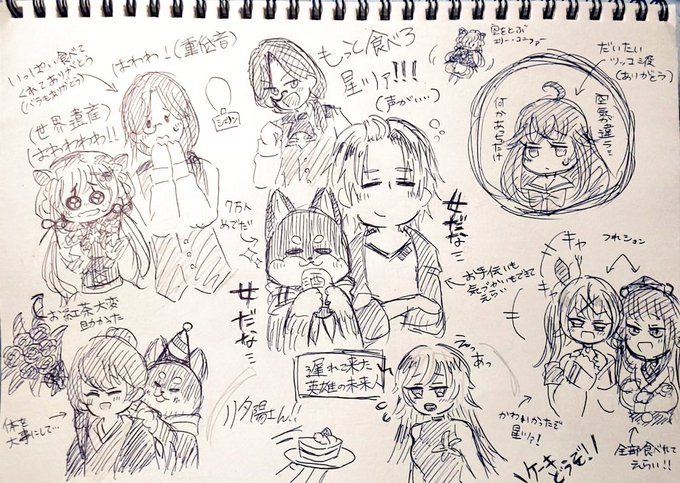 いっぱい食べて
くれてありがとう
(バラもありがとう)
はわわ!(重低音)
(世界遺産)
はわわわわ!!
もっと食べろ
星ツァ!!!
(声がいい)
空をとぶ
だいたい
ツッコミ役
(ありがとう)
空気が違う…
何かあっちだけ
7万人
めでだ
女だな…
女だな…
お手伝いも
気づかいもできて
えらい
キャ
キャ
お紅茶大変
助かった
体を
大事にして…
遅れて来た
英雄の未来人
夕陽ェん!!
えっ
あっ
かわいかったぞ
星ツァ!
ケーキ
どうぞ!!
全部食べれて
えらい!!